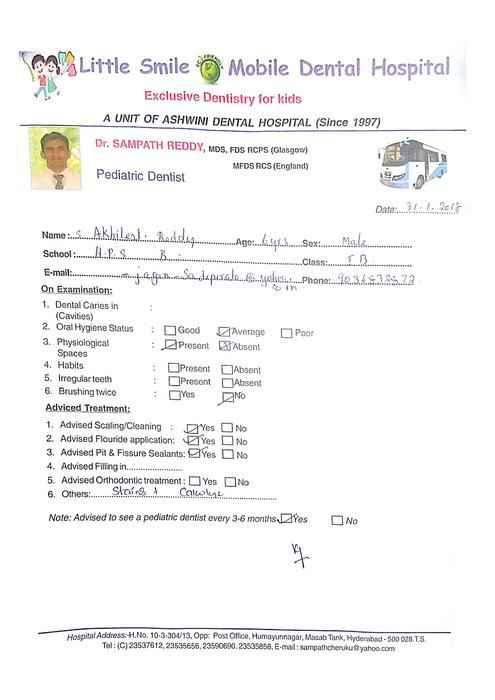 Little Smile Mobile Dental Hospital
Exclusive Dentistry for kids
A UNIT OF ASHWINI DENTAL HOSPITAL (Since 1997)
Dr. SAMPATH REDDY, MDS, FDS RCPS (Glasgow)
MFDS RCS (England)
Pediatric Dentist
Date: 31.1.2018
Name: S. Akhilesh Reddy Age: 6yrs Sex: Male
School: H.P.S B. Class: I B
E-mail: Phone:
On Examination:
1. Dental Caries in (Cavities) :
2. Oral Hygiene Status : Good Average Poor
3. Physiological Spaces : Present Absent
4. Habits : Present Absent
5. Irregular teeth : Present Absent
6. Brushing twice : Yes No
Adviced Treatment:
1. Advised Scaling/Cleaning : Yes No
2. Advised Flouride application: Yes No
3. Advised Pit & Fissure Sealants: Yes No
4. Advised Filling in....................
5. Advised Orthodontic treatment : Yes No
6. Others: Stains +
Note: Advised to see a pediatric dentist every 3-6 months Yes No
Hospital Address:-H.No. 10-3-304/13, Opp: Post Office, Humayunnagar, Masab Tank, Hyderabad - 500 028.T.S.
Tel : (C) 23537612, 23535656, 23590690. 23535858, E-mail : sampathcheruku@yahoo.com